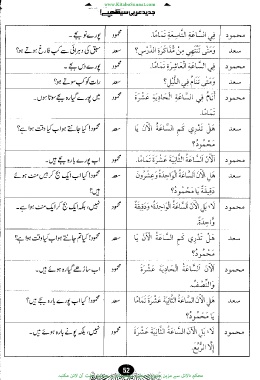 www.KitaboSunnat.com
جدید عربی سیکھیے!
محمود فِي السَّاعَةِ التَّاسِعَةِ تَمَامًا. محمود پورے نو بجے۔
سعد وَمَتٰى تَنْتَهِي مِنْ مُذَاكَرَةِ الدَّرْسِ؟ سعد سبق کی دہرائی سے کب فارغ ہوتے ہو؟
محمود فِي السَّاعَةِ الْعَاشِرَةِ تَمَامًا. محمود پورے دس بجے۔
سعد وَمَتٰى تَنَامُ فِي اللَّيْلِ؟ سعد رات کو کب سوتے ہو؟
محمود أَنَامُ فِي السَّاعَةِ الْحَادِيَةَ عَشْرَةَ محمود میں پورے گیارہ بجے سوتا ہوں۔
تَمَامًا.
سعد هَلْ تَدْرِي كَمِ السَّاعَةُ الْآنَ يَا سعد محمود! کیا جانتے ہو اب کیا وقت ہوا ہے؟
مَحْمُودُ؟
محمود اَلْآنَ السَّاعَةُ الثَّانِيَةَ عَشْرَةَ تَمَامًا. محمود اب پورے بارہ بجے ہیں۔
سعد هَلِ الْآنَ السَّاعَةُ الْوَاحِدَةُ وَعِشْرُونَ سعد محمود! کیا اب ایک بج کر بیس منٹ ہوئے
دَقِيقَةً يَا مَحْمُودُ؟ ہیں؟
محمود لَا، بَلِ الْآنَ السَّاعَةُ الْوَاحِدَةُ وَدَقِيقَةٌ محمود نہیں، بلکہ ایک بج کر ایک منٹ ہوا ہے۔
وَاحِدَةٌ.
سعد هَلْ تَدْرِي كَمِ السَّاعَةُ الْآنَ يَا سعد محمود! کیا تم جانتے ہو اب کیا وقت ہوا ہے؟
مَحْمُودُ؟
محمود اَلْآنَ السَّاعَةُ الْحَادِيَةَ عَشْرَةَ محمود اب ساڑھے گیارہ ہوئے ہیں۔
وَالنِّصْفُ.
سعد هَلِ الْآنَ السَّاعَةُ الثَّانِيَةَ عَشْرَةَ تَمَامًا سعد محمود! کیا اب پورے بارہ بجے ہیں؟
يَا مَحْمُودُ؟
محمود لَا، بَلِ الْآنَ السَّاعَةُ الثَّانِيَةَ عَشْرَةَ محمود نہیں، بلکہ پونے بارہ ہوئے ہیں۔
إِلَّا الرُّبُعَ.
52